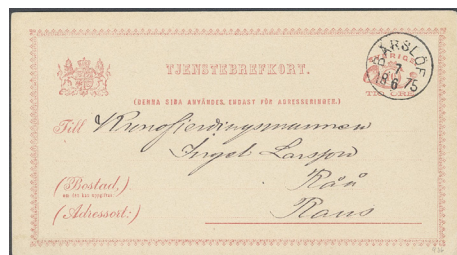 TJENSTEBREFKORT.
BÅRSLÖF
7
6
1875
SVERIGE
TIO ÖRE
(DENNA SIDA ANVÄNDES ENDAST FÖR ADRESSERINGEN.)
Till Kronofjerdingsmannen
Larsson
Råå
Raus
(Bostad,)
(Adressort:)